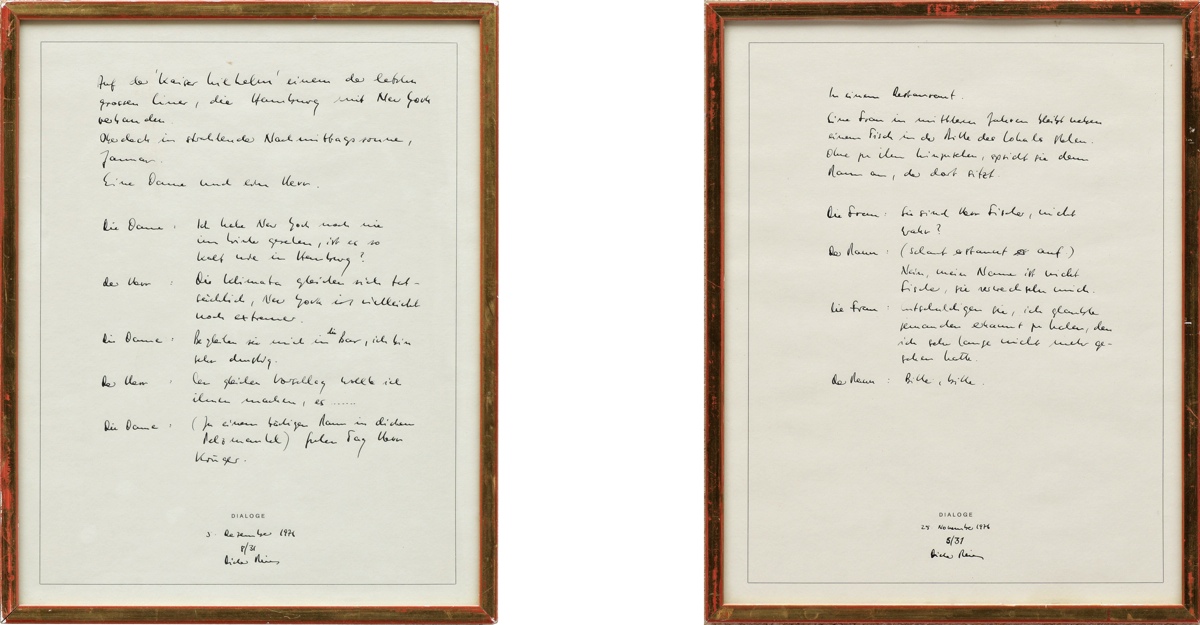 Auf der 'Kaiser Wilhelm' einem der letzten
grossen Liner, die Hamburg mit New York
verbanden.
Oberdeck in strahlender Nachmittagssonne,
Januar.
Eine Dame und ein Herr.
Die Dame : Ich habe New York noch nie
im Winter gesehen, ist es so
kalt wie in Hamburg?
Der Herr : Die Klimata gleichen sich tat-
sächlich, New York ist vielleicht
noch extremer.
Die Dame : Begleiten sie mich in die Bar, ich bin
sehr durstig.
Der Herr : Den gleichen Vorschlag wollte ich
ihnen machen, es ......
Die Dame : (Zu einem bärtigen Mann in dickem
Pelzmantel) Guten Tag Herr
Krüger.
DIALOGE
5. Dezember 1976
8/31
In einem Restaurant.
Eine Frau in mittleren Jahren bleibt neben
einem Tisch in der Mitte des Lokals stehen.
Ohne zu ihm hinzusehen, spricht sie den
Mann an, der dort sitzt.
Die Frau : Sie sind Herr Fischer, nicht
wahr?
Der Mann : (schaut erstaunt auf)
Nein, mein Name ist nicht
Fischer, sie verwechseln mich.
Die Frau : entschuldigen sie, ich glaubte
jemanden erkannt zu haben, den
ich sehr lange nicht mehr ge-
sehen hatte.
Der Mann : Bitte, bitte.
DIALOGE
November 1976
8/31